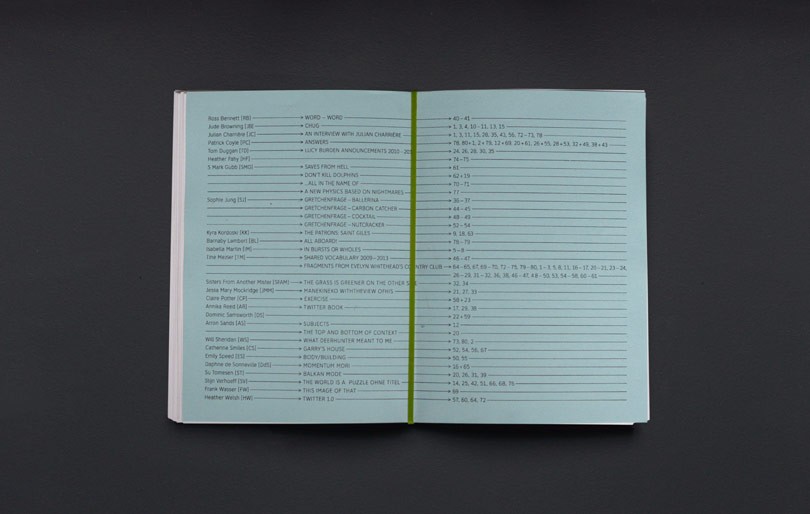 Ross Bennett [RB] WORD - WORD 40 - 41
Jude Browning [JB] CHUG 1, 3, 4, 10 - 11, 13, 15
Julian Charrière [JC] AN INTERVIEW WITH JULIAN CHARRIÈRE 1, 3, 11, 15, 28, 35, 43, 56, 72 - 73, 78
Patrick Coyle [PC] ANSWERS
Tom Duggan [TD] LUCY BURDEN ANNOUNCEMENTS 2010 - 24, 26, 28, 30, 35
Heather Fahy [HF] 74 - 75
S Mark Gubb [SMG] SAVES FROM HELL 61
DON'T KILL DOLPHINS 62 + 19
ALL IN THE NAME OF 70 - 71
A NEW PHYSICS BASED ON NIGHTMARES 77
Sophie Jung [SJ] GRETCHENFRAGE - BALLERINA 36 - 37
GRETCHENFRAGE - CARBON CATCHER 44 - 45
GRETCHENFRAGE - COCKTAIL 48 - 49
GRETCHENFRAGE - NUTCRACKER 52 - 54
Kyra [KK] THE PATRONS: SAINT GILES 9, 18, 63
Barnaby Lambert [BL] ALL ABOARD!
Isabelle Martin [IM] IN BURSTS OR WHOLES 5 - 8
Tine Melzer [TM] SHARED VOCABULARY 2009 - 2013 46 - 47
FRAGMENTS FROM EVELYN WHITEHEAD'S COUNTRY CLUB
Sisters From Another Mister [SFAM] THE GRASS IS GREENER ON THE OTHER 32, 34
Jessa Mary Mockridge [JMM] MANEKINEKO 21, 27, 33
Claire Potter [CP] EXERCISE 58 + 23
Annike Reed [AR] TWITTER BOOK 17, 29, 38
Dominic Samsworth [DS] 22 + 59
Arron Sands [AS] SUBJECTS 12
THE TOP AND BOTTOM OF CONTEXT 20
Will Sheridan WHAT DEERHUNTER MEANT TO ME 73, 80, 2
Catherine Smiles [CS] GARRY'S HOUSE 52, 54, 56, 67
Emily Speed [ES] BODY/BUILDING 50, 55
Daphne de Sonneville [DdS] MOMENTUM MORI 16 + 65
Su Tomesen [ST] BALKAN MODE 20, 26, 31, 39
Stijn Verhoeff [SV] THE WORLD IS A PUZZLE OHNE TITEL 14, 25, 42, 51, 66, 68, 76
Frank Wasser [FW] THIS IMAGE OF THAT
Heather Welsh [HW] TWITTER 1.0 57, 60, 64, 72